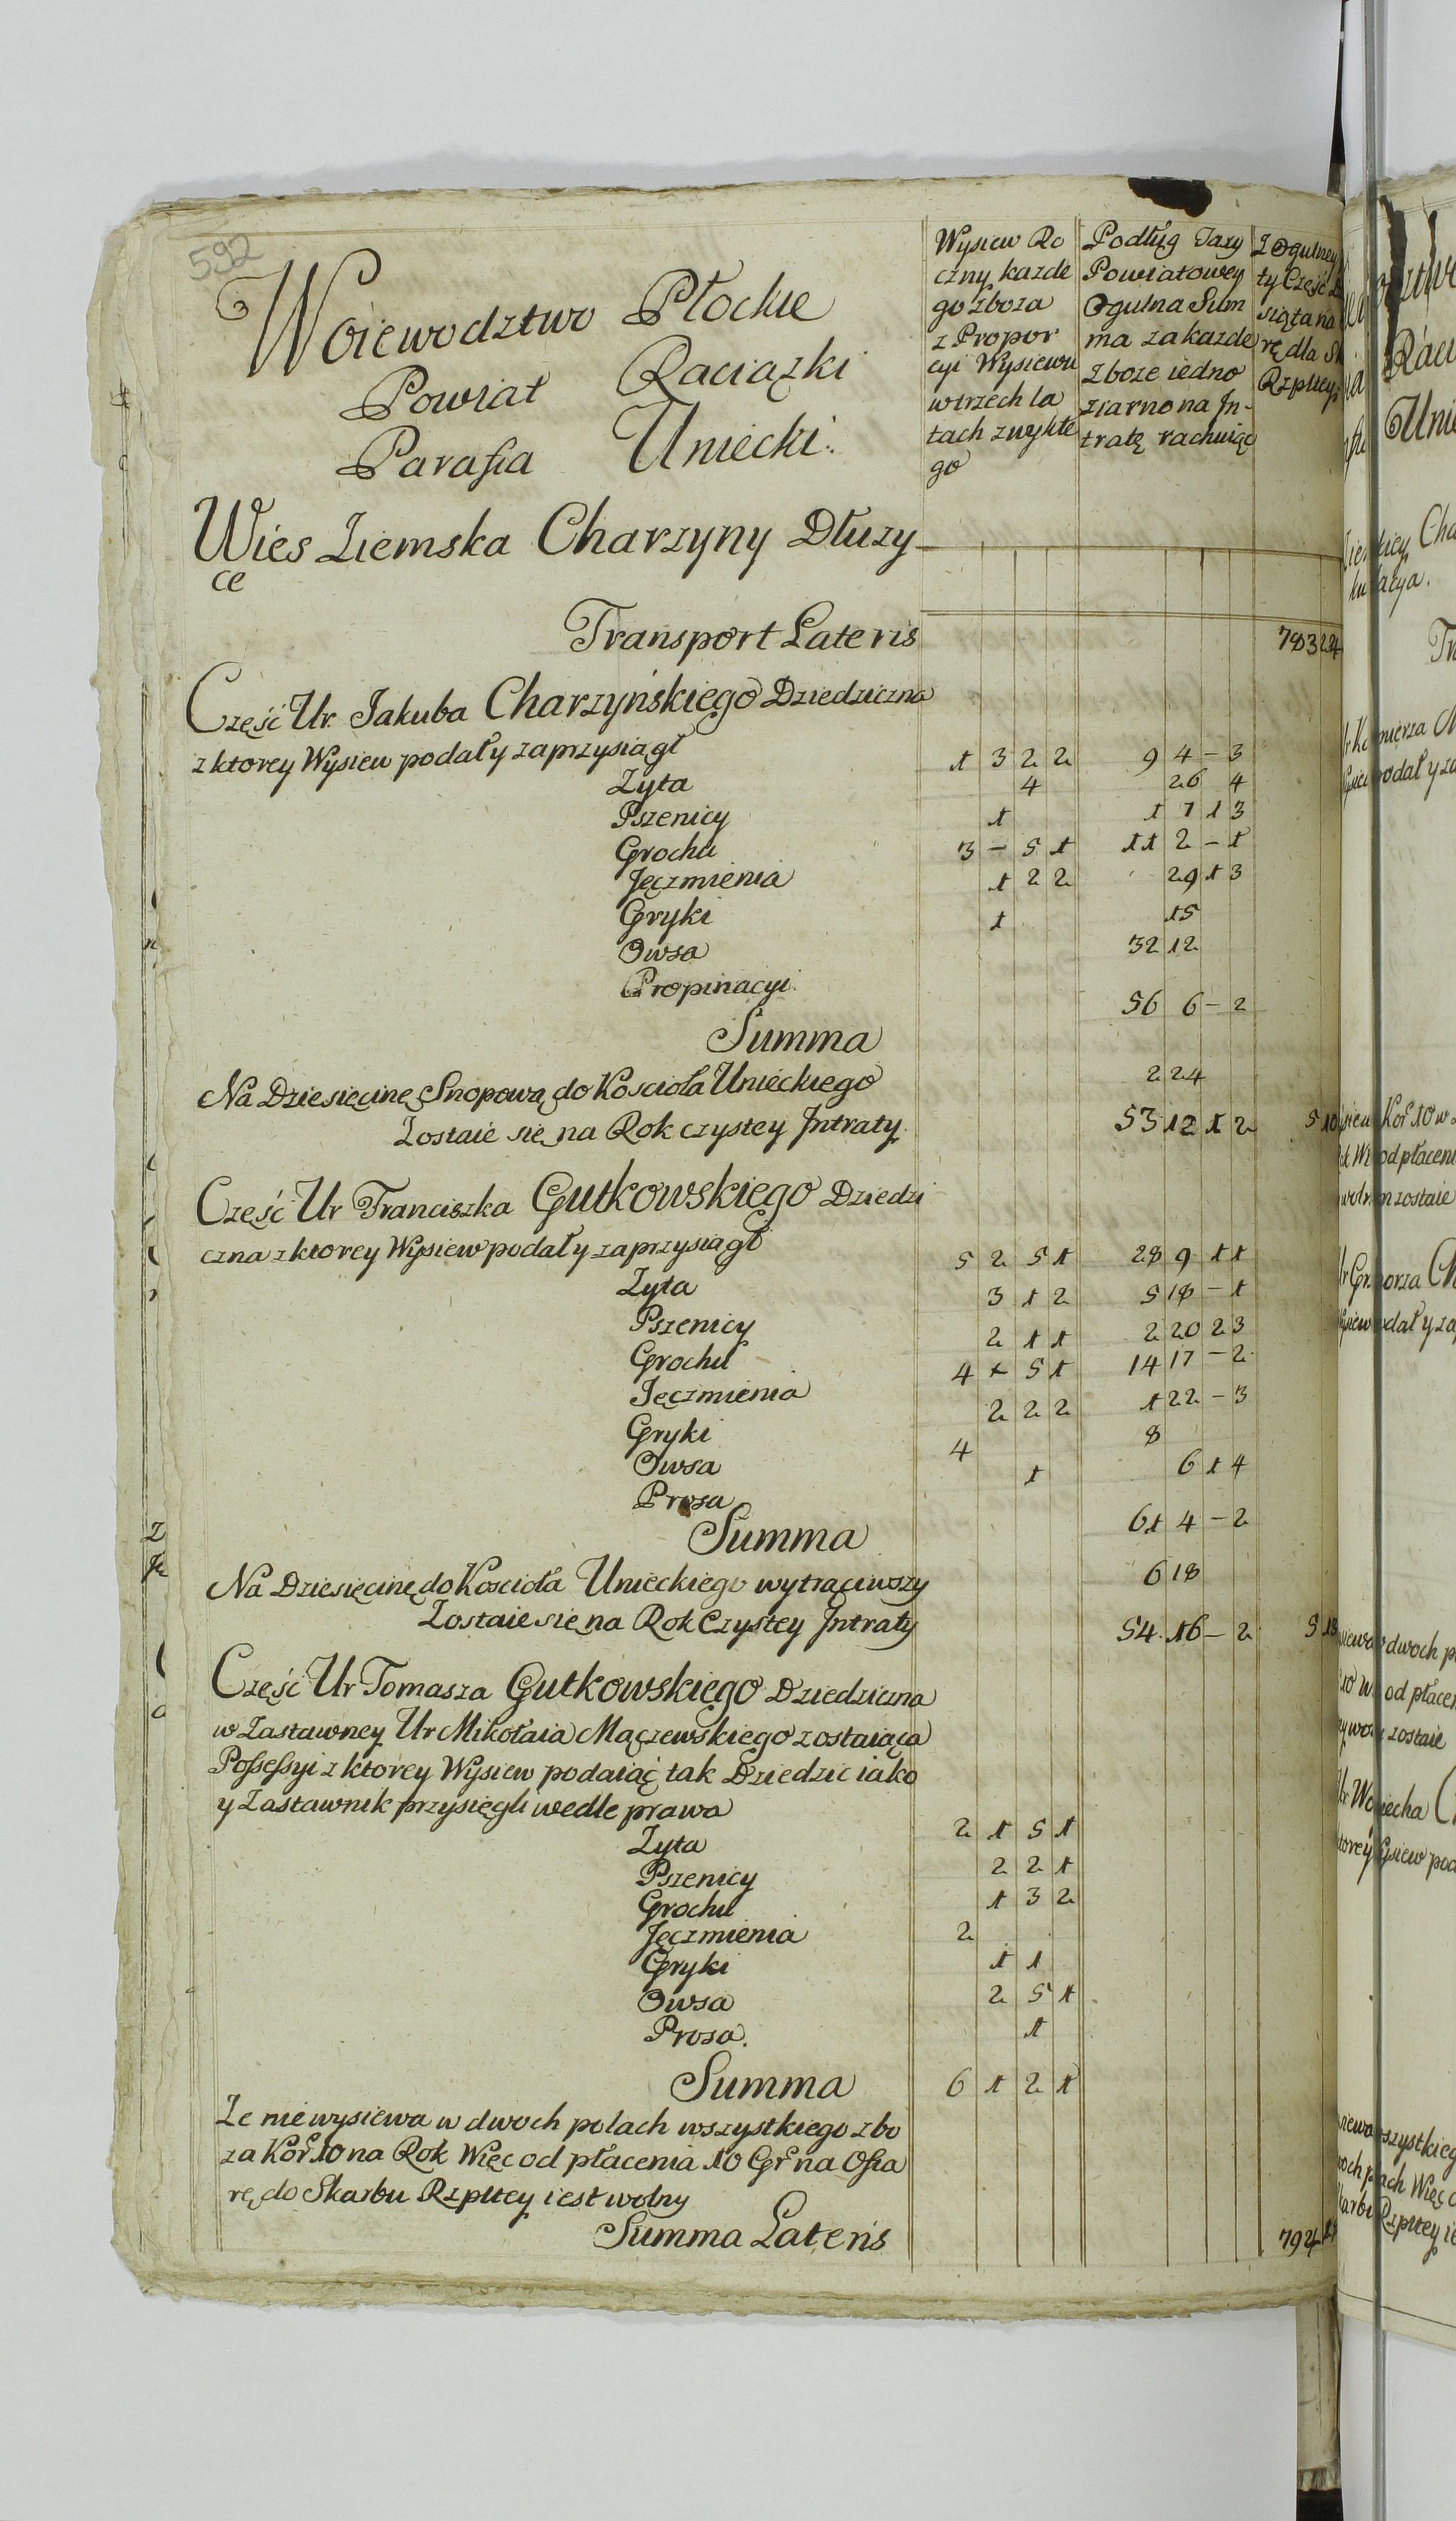 592
Woiewodztwo Płockie
Powiat Raciązki
Parafia Uniecki.
Wysiew Ro
czny kazde
go zboza
z Propor
cyi Wysiewu
w trzech la
tach zwykłe
go
Podług Taxy
Powiatowey
Ogulna Sum
ma za kazde
zboze iedno
ziarno na In-
tratę rachuiąc
Z Ogulney
ty Część
siąta na
rę dla
Rzpltey
Wies Ziemska Charzyny Dłuzy
ce
Transport Lateris 783 24
Część Ur. Jakuba Charzyńskiego Dziedziczna
z ktorey Wysiew podały zaprzysiągł
Zyta 1 3 2 2 9 4 - 3
Pszenicy 4 26 4
Grochu 1 1 7 1 3
Jęczmienia 3 - 5 1 11 2 - 1
Gryki 1 2 2 29 1 3
Owsa 1 15
Propinacyi. 32 12
Summa 56 6 - 2
Na Dziesięcinę Snopową do Kościoła Unieckiego 2 24
Zostaie się na Rok czystey Intraty 53 12 1 2 5 10
Część Ur Franciszka Gutkowskiego Dziedzi
czna z ktorey Wysiew podały zaprzysiągł
Zyta 5 2 5 1 28 9 1 1
Pszenicy 3 1 2 5 18 - 1
Grochu 2 1 1 2 20 2 3
Jęczmienia 4 1 5 1 14 17 - 2
Gryki 2 2 2 1 22 - 3
Owsa 4 8
Prosa 1 6 1 4
Summa 61 4 - 2
Na Dziesięcinę do Kościoła Unieckiego wytrąciwszy 6 18
Zostaie się na Rok Czystey Intraty 54 16 - 2 5
Część Ur Tomasza Gutkowskiego Dziedziczna
w Zastawney Ur Mikołaia Mączewskiego zostaiąca
Possessyi z ktorey Wysiew podaiąc tak Dziedzic iako
y Zastawnik przysięgli wedle prawa
Zyta 2 1 5 1
Pszenicy 2 2 1
Grochu 1 3 2
Jęczmienia 2
Gryki 1 1
Owsa 2 5 1
Prosa. 1
Summa 6 1 2 1
Ze nie wysiewa w dwoch polach wszystkiego zbo
za Kor 10 na Rok Więc od płacenia 10 Gr na Ofia
rę do Skarbu Rzpltey iest wolny
Summa Lateris 794